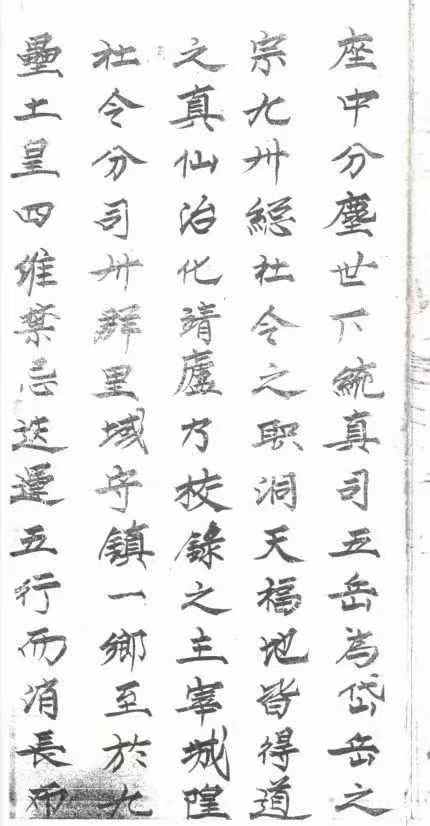 座中分塵世下統真司五岳為岱岳之
宗九州総社令之職洞天福地皆得道
之真仙治化靖廬乃校錄之主宰城隍
社令分司州辟里域守鎮一鄉至於九
壘土皇四維禁忌迭運五行而消長